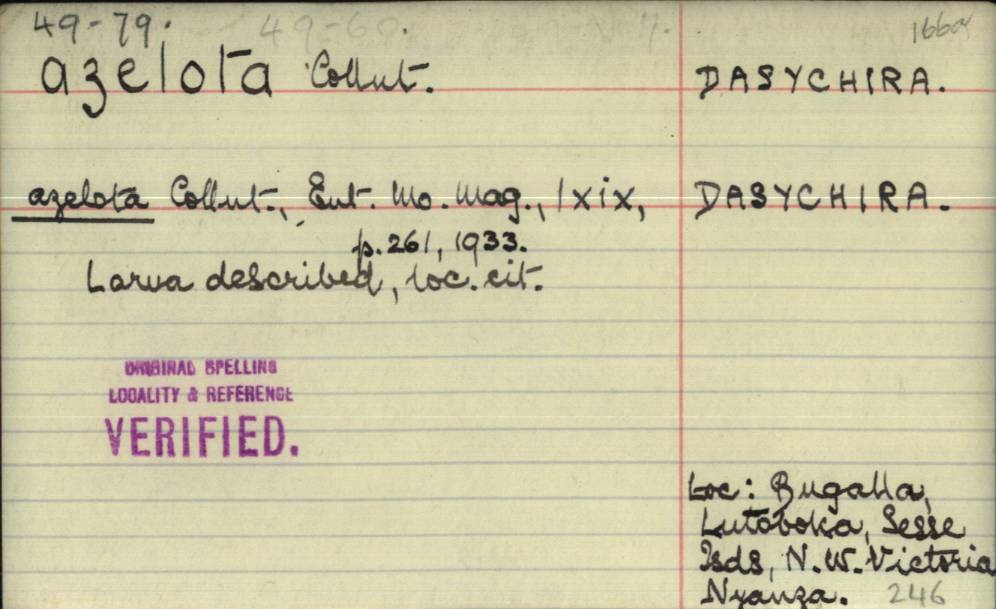 49-79. 49-60. 166a
azelota Collnt. DASYCHIRA.
azelota Collnt., Ent. Mo. Mag., lxix, DASYCHIRA.
p. 261, 1933.
Larva described, loc. cit.
ORIGINAL SPELLING
LOCALITY & REFERENCE
VERIFIED.
Loc: Bugalla,
Lutoboka, Sesse
Isds, N.W. Victoria
Nyanza. 246